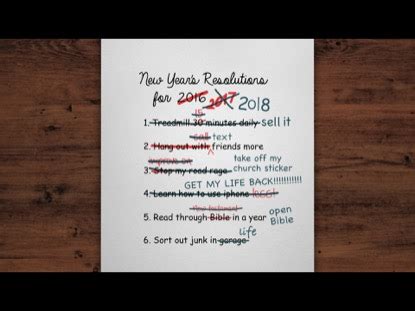 New Year's Resolutions
for 2016 2017 2018
15
1. Treadmill 30 minutes daily sell it
call text
2. Hang out with friends more
improve on take off my
3. Stop my road rage church sticker
GET MY LIFE BACK!!!!!!!!!!!
4. Learn how to use iphone less!
New testament open
5. Read through Bible in a year Bible
life
6. Sort out junk in garage